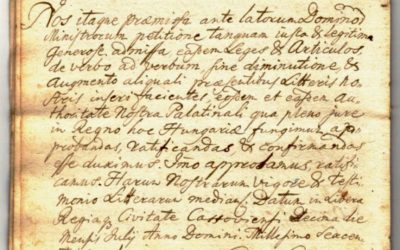 Nos itaque præmissa ante latorum Dominor
Ministrorum petitione tanquam iusta & legitima
Generose admissa, eosdem Leges & Articulos,
de verbo ad verbum sine diminutione &
Augmento aliquali præsentibus Litteris no
stris inseri facientes, eosdem et easdem Au
thoritate Nostra Palatinali qua pleno jure
in Regno hoc Hungariæ fungimur ap
probandas, ratificandas & confirmandas
esse duximus. Imo approbamus, ratifi
camus. Harum Nostrarum vigore & testi
monio Litterarum mediante. Datum in Libera
Regiaq Civitate Cassoviensi Decima die
Mensis Julij Anno Domini. Millesimo Sexcen